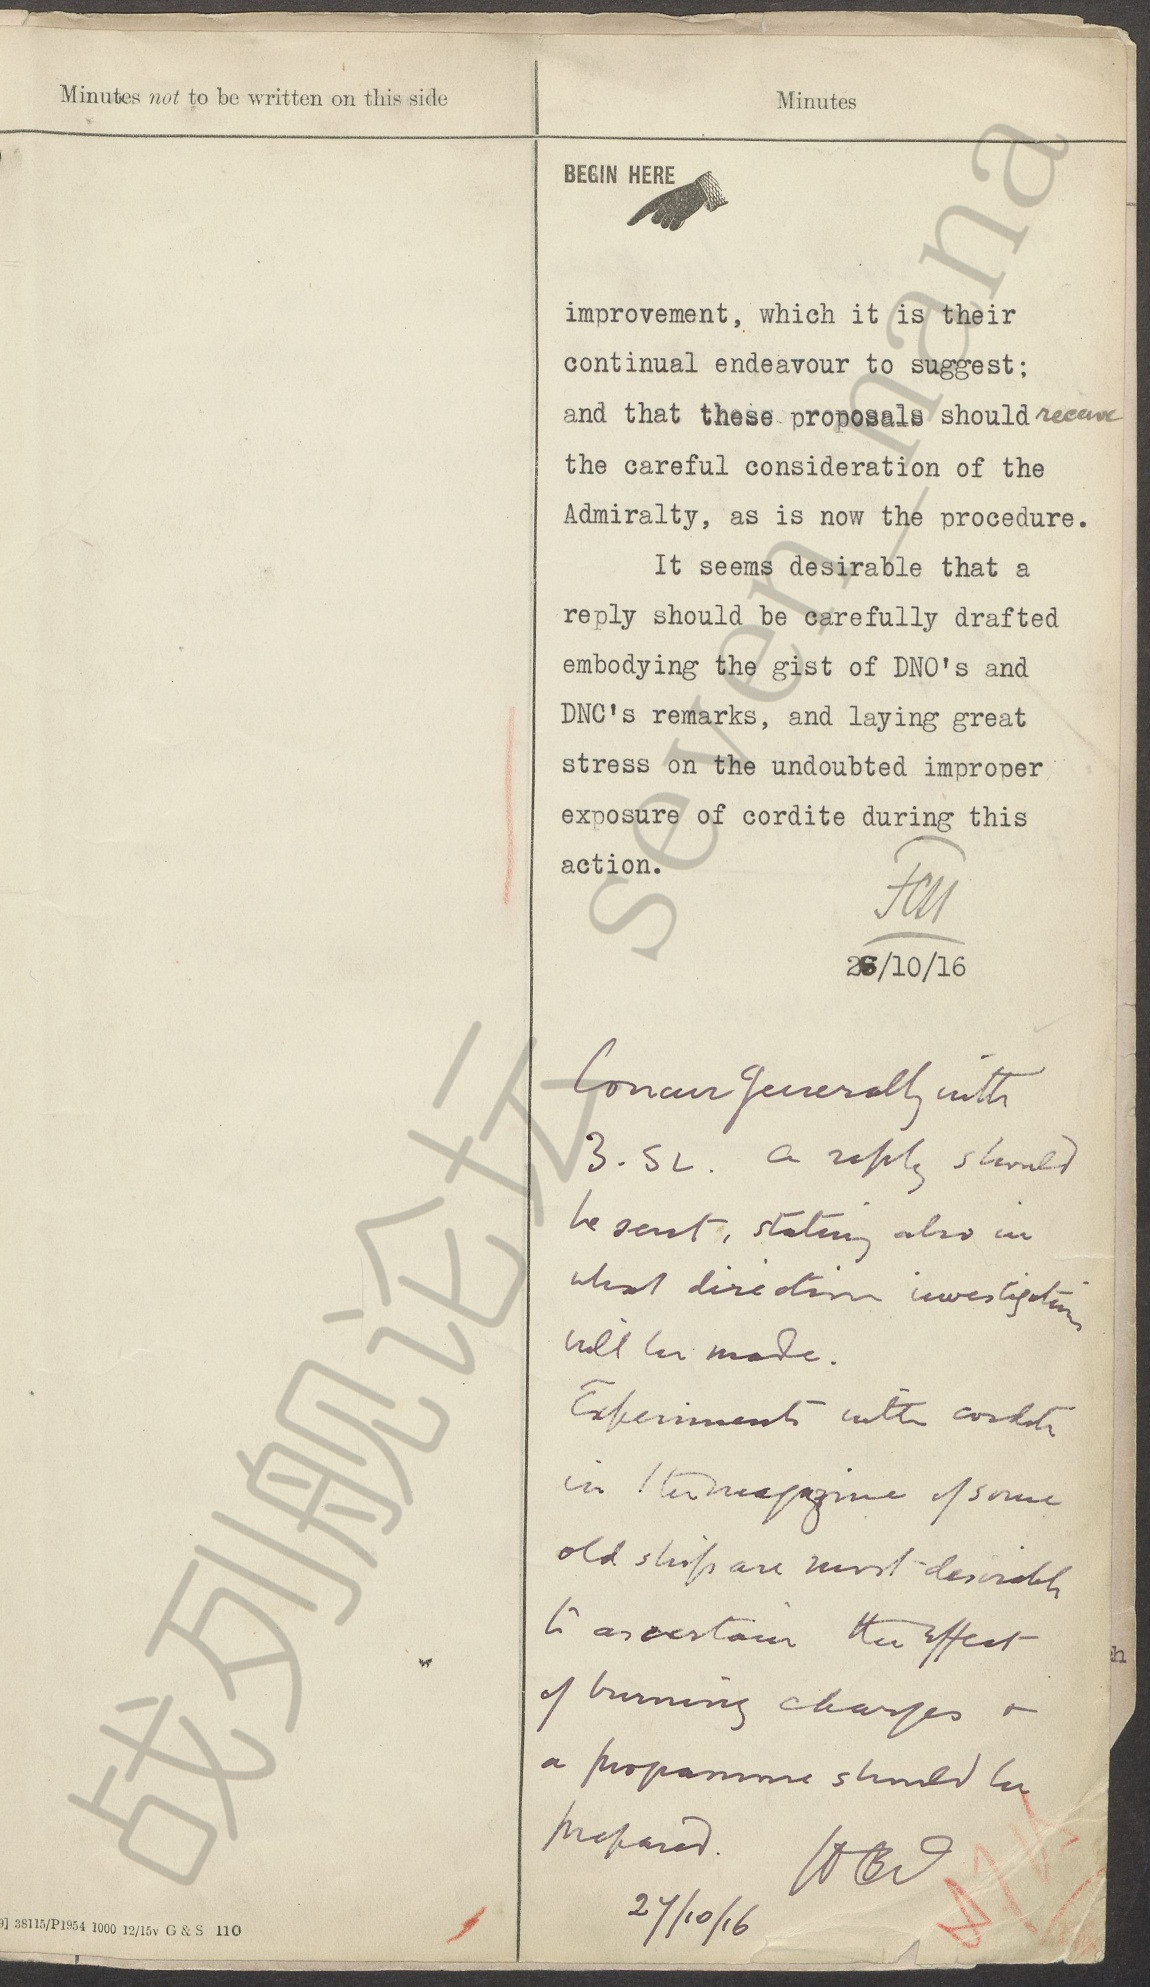 Minutes not to be written on this side
Minutes
BEGIN HERE
improvement, which it is their
continual endeavour to suggest;
and that these proposals should receive
the careful consideration of the
Admiralty, as is now the procedure.
It seems desirable that a
reply should be carefully drafted
embodying the gist of DNO's and
DNC's remarks, and laying great
stress on the undoubted improper
exposure of cordite during this
action.
FCT
26/10/16
Concur generally with
3. SL. A reply should
be sent, stating also in
what direction investigations
will be made.
Experiments with cordite
in the magazine of some
old ship are most desirable
to ascertain the effect
of burning charges &
a programme should be
prepared.
HBJ
27/10/16
9] 38115/P1954 1000 12/15v G & S 110
战列舰论坛 seven_nana